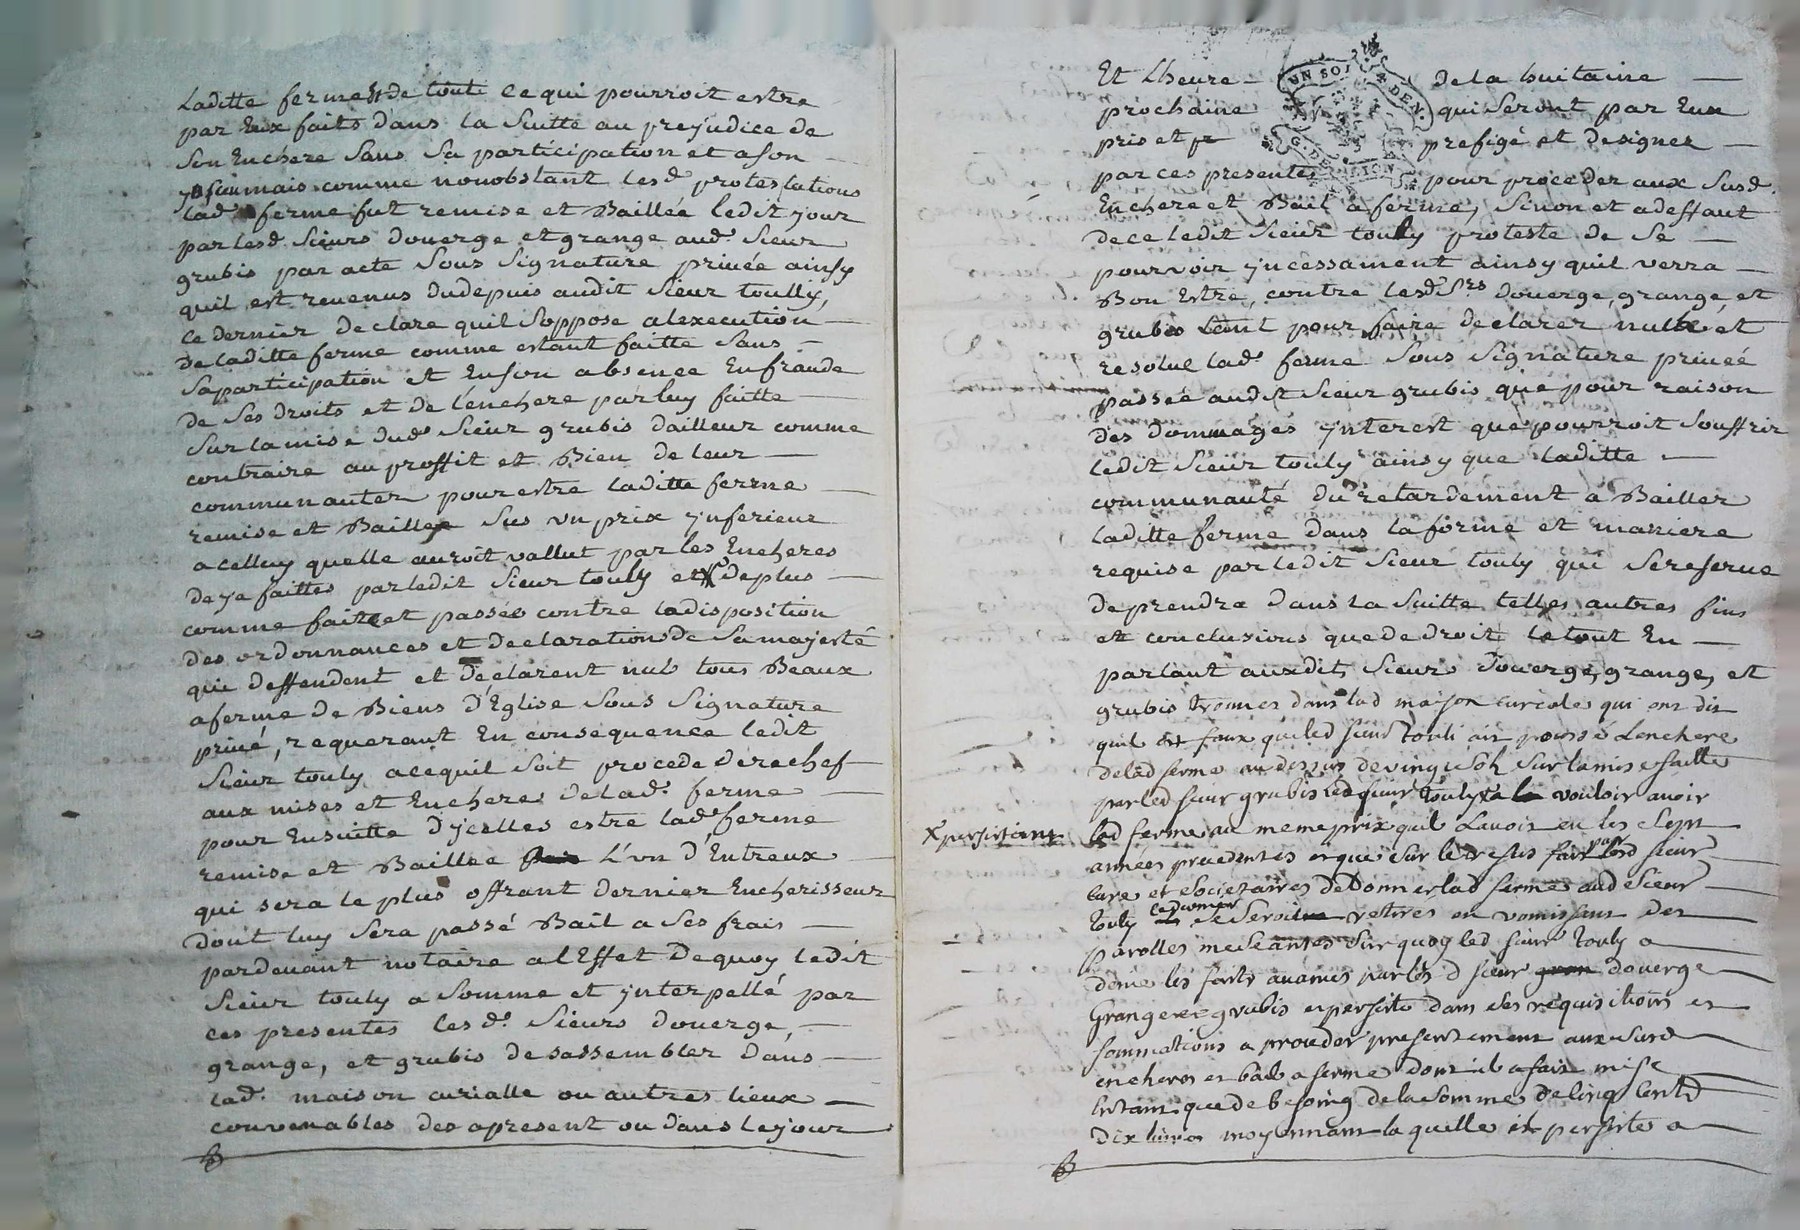 Laditte ferme et de tout ce qui pourroit estre
par Eux faits dans la Suitte au prejudice de
Son Enchere Sans Sa participation et a son
mais comme nonobstant lesd. protestations
lad. ferme fut remise et Baillée ledit jour
par lesd. Sieurs douerge et grange aud. Sieur
grubis par acte Sous Signature privée ainsy
quil est revenus dudepuis audit Sieur toully,
ce dernier declare quil Soppose alexecution
de laditte ferme comme estant faitte Sans
Saparticipation et Enson absence Enfraude
de Ses droits et de lenchere par luy faitte
Sur la mise dud. Sieur grubis dailleur comme
contraire au proffit et Bien de leur
communauter pour estre laditte ferme
remise et Baillée Sus vn prix jnferieur
a celluy quelle auroit vallut par les Encheres
de ja faittes par ledit Sieur touly et deplus
comme fait et passée contre la disposition
des ordonnances et declarations de Sa majesté
qui deffendent et déclarent nuls tous Beaux
aferme de Biens d'Eglise Sous Signature
privé, requerant En consequence ledit
Sieur touly acequil Soit procede derechef
aux mises et Encheres de lad. ferme
pour Ensuitte d'jcelles estre lad. ferme
remise et Baillée L'vn d'Entreux
qui sera le plus offrant dernier Encherisseur
dont luy Sera passé Bail a Ses frais
pardevant notaire a l'Effet de quoy ledit
Sieur touly a Somme et jnterpellé par
ces presentes lesd. Sieurs douerge,
grange, et grubis de sassembler dans
lad. maison curialle ou autres lieux
convenables des apresent ou dans lejour
Et Lheure de la huitaine
UN SOL 4 DEN.
prochaine qui Seront par Eux
pris et prefigé et designer
par ces presentes pour proceder aux Susd.
Enchere et Bail a ferme, Sinon et adeffaut
de ce ledit Sieur touly proteste de Se
pourvoir jncessament ainsy quil verra
Bon Estre, contre lesd. Srs douerge, grange, et
grubis tant pour faire declarer nulle et
resolue lad. ferme Sous Signature privéé
passéé audit Sieur grubis que pour raison
des dommages jnterest que pourroit Souffrir
ledit Sieur touly ainsy que laditte
communauté du retardement a Bailler
laditte ferme dans la forme et maniere
requise par ledit Sieur touly qui Sereserve
de prendre dans la Suitte telles autres fins
et conclusions que de droit le tout En
parlant auxdits Sieurs douerge, grange, et
grubis trouvés dans lad maison curiale qui ont dit
quil est faux que led sieur touli ait poussé Lenchere
delad ferme au dessus de vingt Sols Sur la mise faitte
par led sieur grubis led sieur touly a vouloir avoir
X persistant
lad ferme au meme prix quil Lavoit eu les Sept
années precedentes et que Sur le refus fait par led sieur
Cure et Societaires de Donner lad ferme aud Sieur
touly ce dernier Se Seroit retirés en vomissant des
parolles mesceantes Sur quoy led sieur touly a
denié les faits avancés par lesd sieur douerge
Grange et grubis et persiste dans Ses requisitions et
sommations a proceder presentement aux susd
encheres et bail a ferme dont il a fait mise
Entant que de besoing de la Somme de Cinq Cent
dix livres moyennant laquelle il persiste a